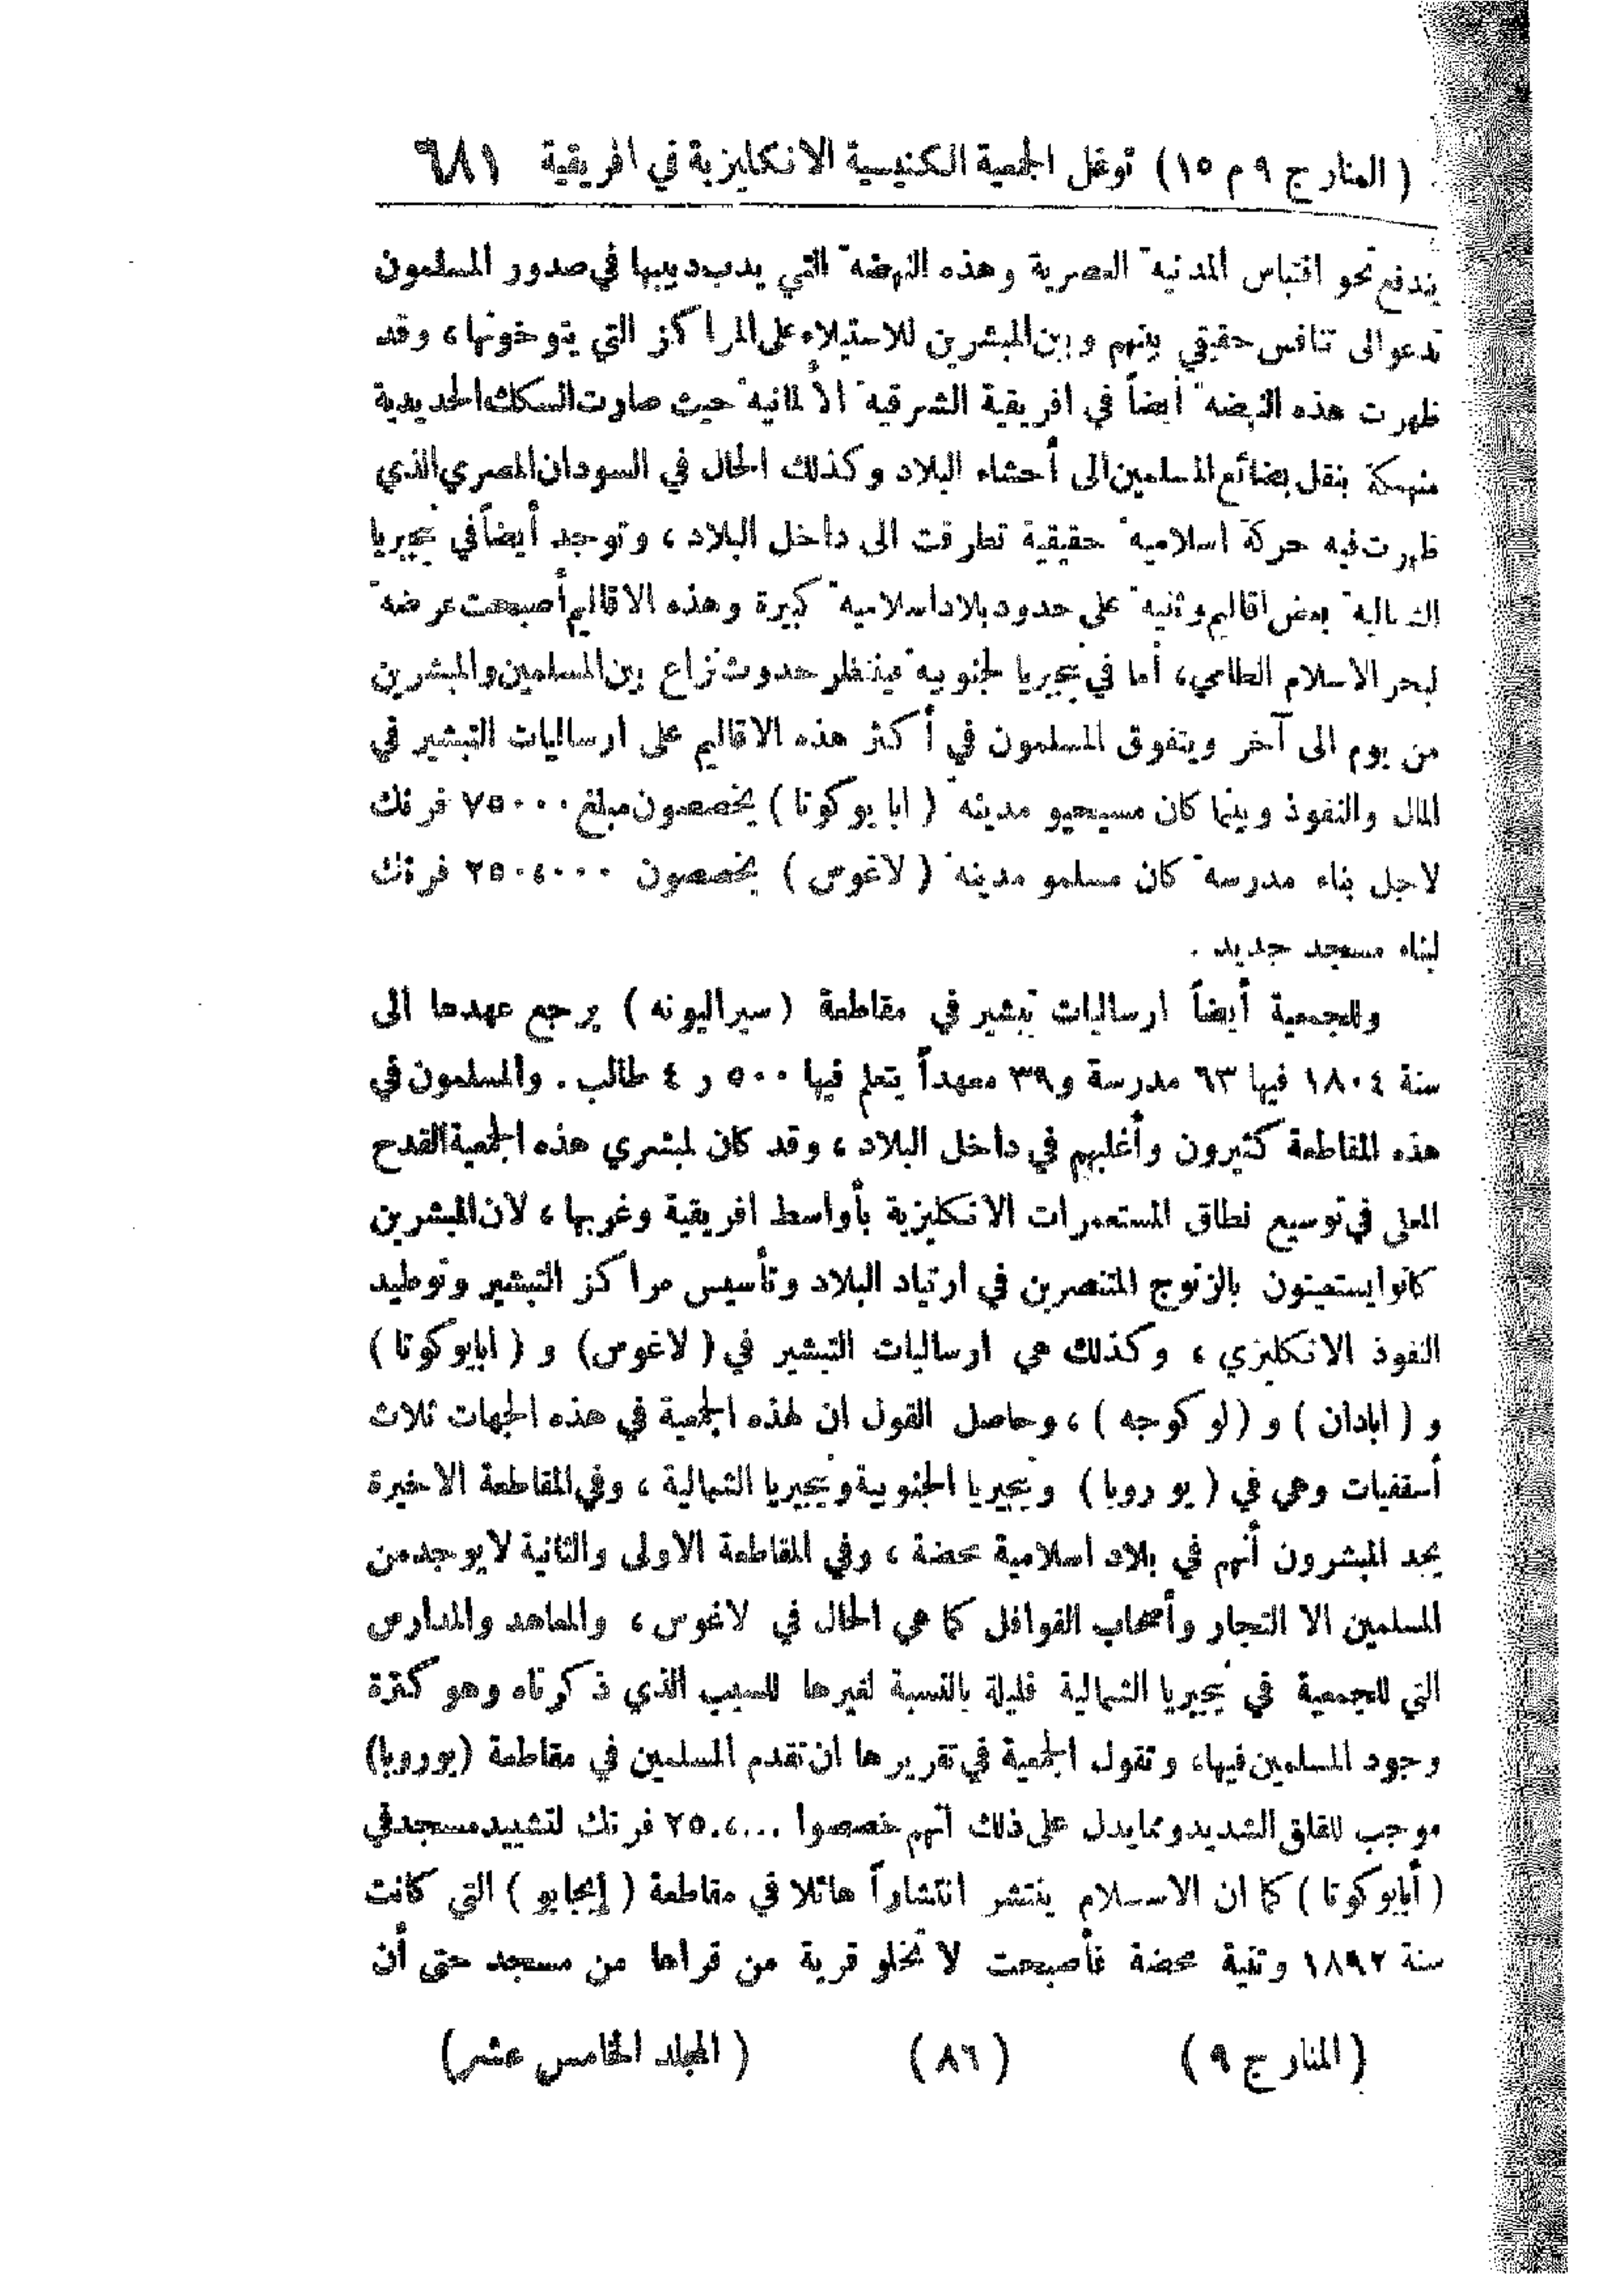 (المنار ج ٩ م ١٥) توغل الجمعية الكنيسية الانكليزية في افريقية ٦٨١
يندفع نحو اقتباس المدنية العصرية وهذه النهضة التي يدب دبيبها في صدور المسلمون
تدعو الى تنافس حقيقي بينهم وبين المبشرين للاستيلاء على المراكز التي يتوخونها، وقد
ظهرت هذه النهضة أيضاً في افريقية الشرقية الألمانية حيث صارت السكك الحديدية
منهمكة بنقل بضائع المسلمين الى أحشاء البلاد وكذلك الحال في السودان المصري الذي
ظهرت فيه حركة اسلامية حقيقية تطرقت الى داخل البلاد، وتوجد أيضاً في نيجيريا
الشمالية بعض اقاليم وثنية على حدود بلاد اسلامية كبيرة وهذه الاقاليم أصبحت عرضة
لبحر الاسلام الطامي، أما في نيجيريا لجنوبية فينتظر حدوث نزاع بين المسلمين والمبشرين
من يوم الى آخر ويتفوق المسلمون في أكثر هذه الاقاليم على ارساليات التبشير في
المال والنفوذ وبينما كان مسيحيو مدينة (ابا يو كوتا) يخصصون مبلغ ٧٥٠٠٠ فرنك
لاجل بناء مدرسة كان مسلمو مدينة (لاغوس) يخصصون ٢٥٠،٠٠٠ فرنك
لبناء مسجد جديد .
وللجمعية أيضاً ارساليات تبشير في مقاطعة (سيراليونه) يرجع عهدها الى
سنة ١٨٠٤ فيها ٦٣ مدرسة و٣٩ معهداً يتعلم فيها ٥٠٠ ر ٤ طالب. والمسلمون في
هذه المقاطعة كثيرون وأغلبهم في داخل البلاد، وقد كان لمبشري هذه الجمعية القدح
المعلى في توسيع نطاق المستعمرات الانكليزية بأواسط افريقية وغربها، لان المبشرين
كانوا يستعينون بالزنوج المتنصرين في ارتياد البلاد وتأسيس مراكز التبشير وتوطيد
النفوذ الانكليزي، وكذلك هي ارساليات التبشير في (لاغوس) و (ابايوكوتا)
و (ابادان) و (لوكوجه)، وحاصل القول ان لهذه الجمعية في هذه الجهات ثلاث
أسقفيات وهي في (يوروبا) ونيجيريا الجنوبية ونيجيريا الشمالية، وفي المقاطعة الاخيرة
يجد المبشرون أنهم في بلاد اسلامية محضة، وفي المقاطعة الاولى والثانية لا يوجد من
المسلمين الا التجار وأصحاب القوافل كما هي الحال في لاغوس، والمعاهد والمدارس
التي للجمعية في نيجيريا الشمالية قليلة بالنسبة لغيرها للسبب الذي ذكرناه وهو كثرة
وجود المسلمين فيها، وتقول الجمعية في تقريرها ان تقدم المسلمين في مقاطعة (يوروبا)
موجب للقلق الشديد ومما يدل على ذلك انهم خصصوا ٢٥٠،٠٠٠ فرنك لتشييد مسجد في
(أبايوكوتا) كما ان الاسلام ينتشر انتشاراً هائلا في مقاطعة (إيجابو) التي كانت
سنة ١٨٩٢ وثنية محضة فأصبحت لا تخلو قرية من قراها من مسجد حتى أن
(المنار ج ٩) (٨٦) (المجلد الخامس عشر)